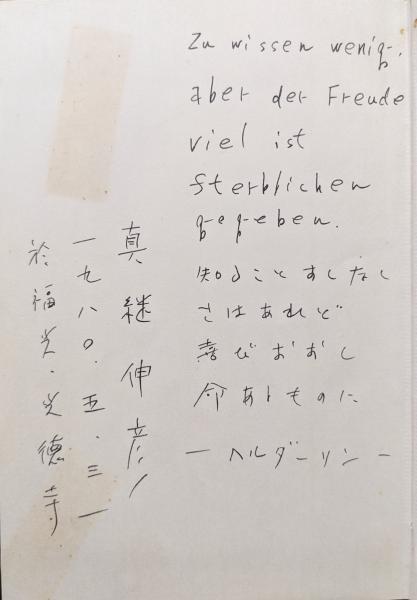 Zu wissen wenig,
aber der Freude
viel ist
Sterblichen
gegeben.
知ることすくなし
さはあれど
喜びおおし
命あるものに
― ヘルダーリン ―
真継伸彦
一九八〇．五．三一
於福光・光徳寺